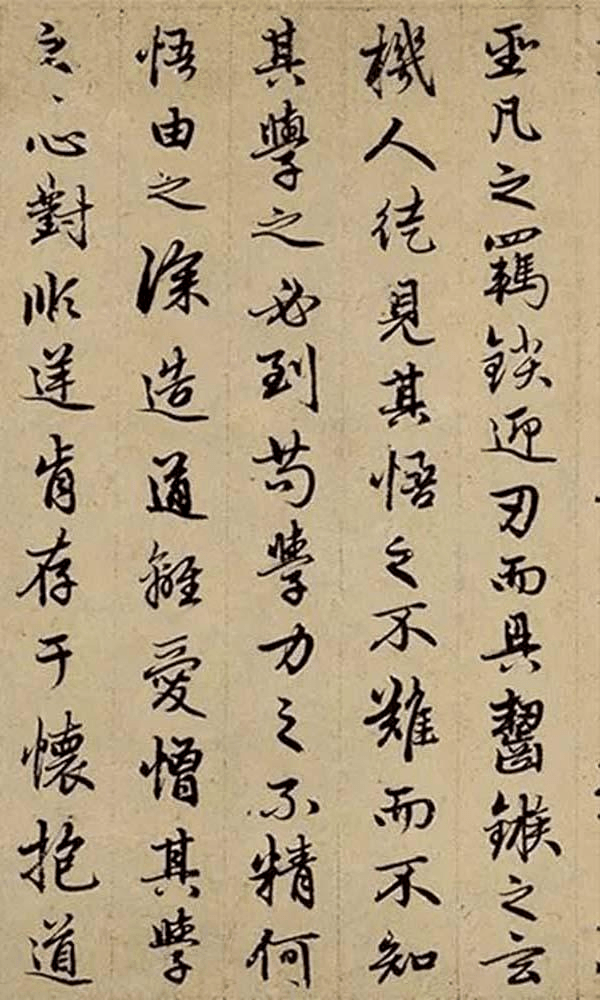 聖凡之羈鏁迎刃而具齧鏃之玄
機人徒見其悟之不難而不知
其學之必到苟學力之不精何
悟由之深造道離愛憎其學
之之心對順逆肯存于懷抱道